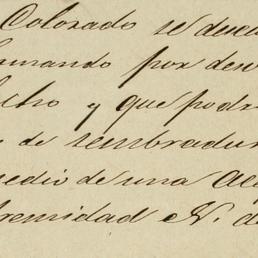 Colorado se desea
ormando por des
cho y que podr
de sembradur
edio de una ace
tremidad N. de